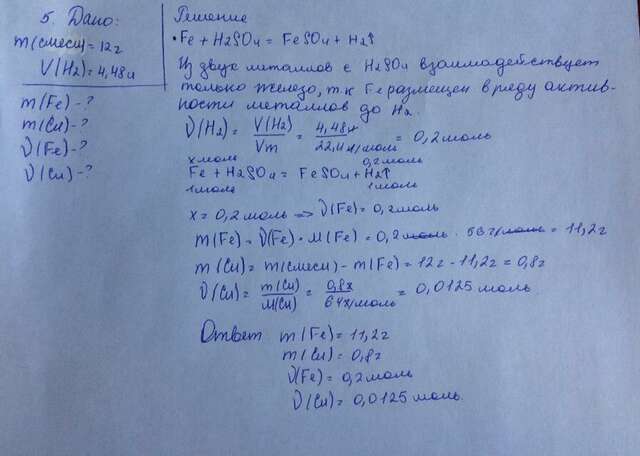 5. Дано:
m(смеси)=12г
V(H2)=4,48л
m(Fe)-?
m(Cu)-?
ν(Fe)-?
ν(Cu)-?
Решение
Fe + H2SO4 = FeSO4 + H2↑
Из двух металлов с H2SO4 взаимодействует
только железо, т.к Fe размещен в ряду актив-
ности металлов до H2.
ν(H2) = V(H2)/Vm = 4,48л/22,4л/моль = 0,2моль
x моль 0,2моль
Fe + H2SO4 = FeSO4 + H2↑
1моль 1моль
x = 0,2моль => ν(Fe)=0,2моль
m(Fe) = ν(Fe) · M(Fe) = 0,2моль · 56г/моль = 11,2г
m(Cu) = m(смеси) - m(Fe) = 12г - 11,2г = 0,8г
ν(Cu) = m(Cu)/M(Cu) = 0,8г/64г/моль = 0,0125моль
Ответ m(Fe) = 11,2г
m(Cu) = 0,8г
ν(Fe) = 0,2моль
ν(Cu) = 0,0125 моль.